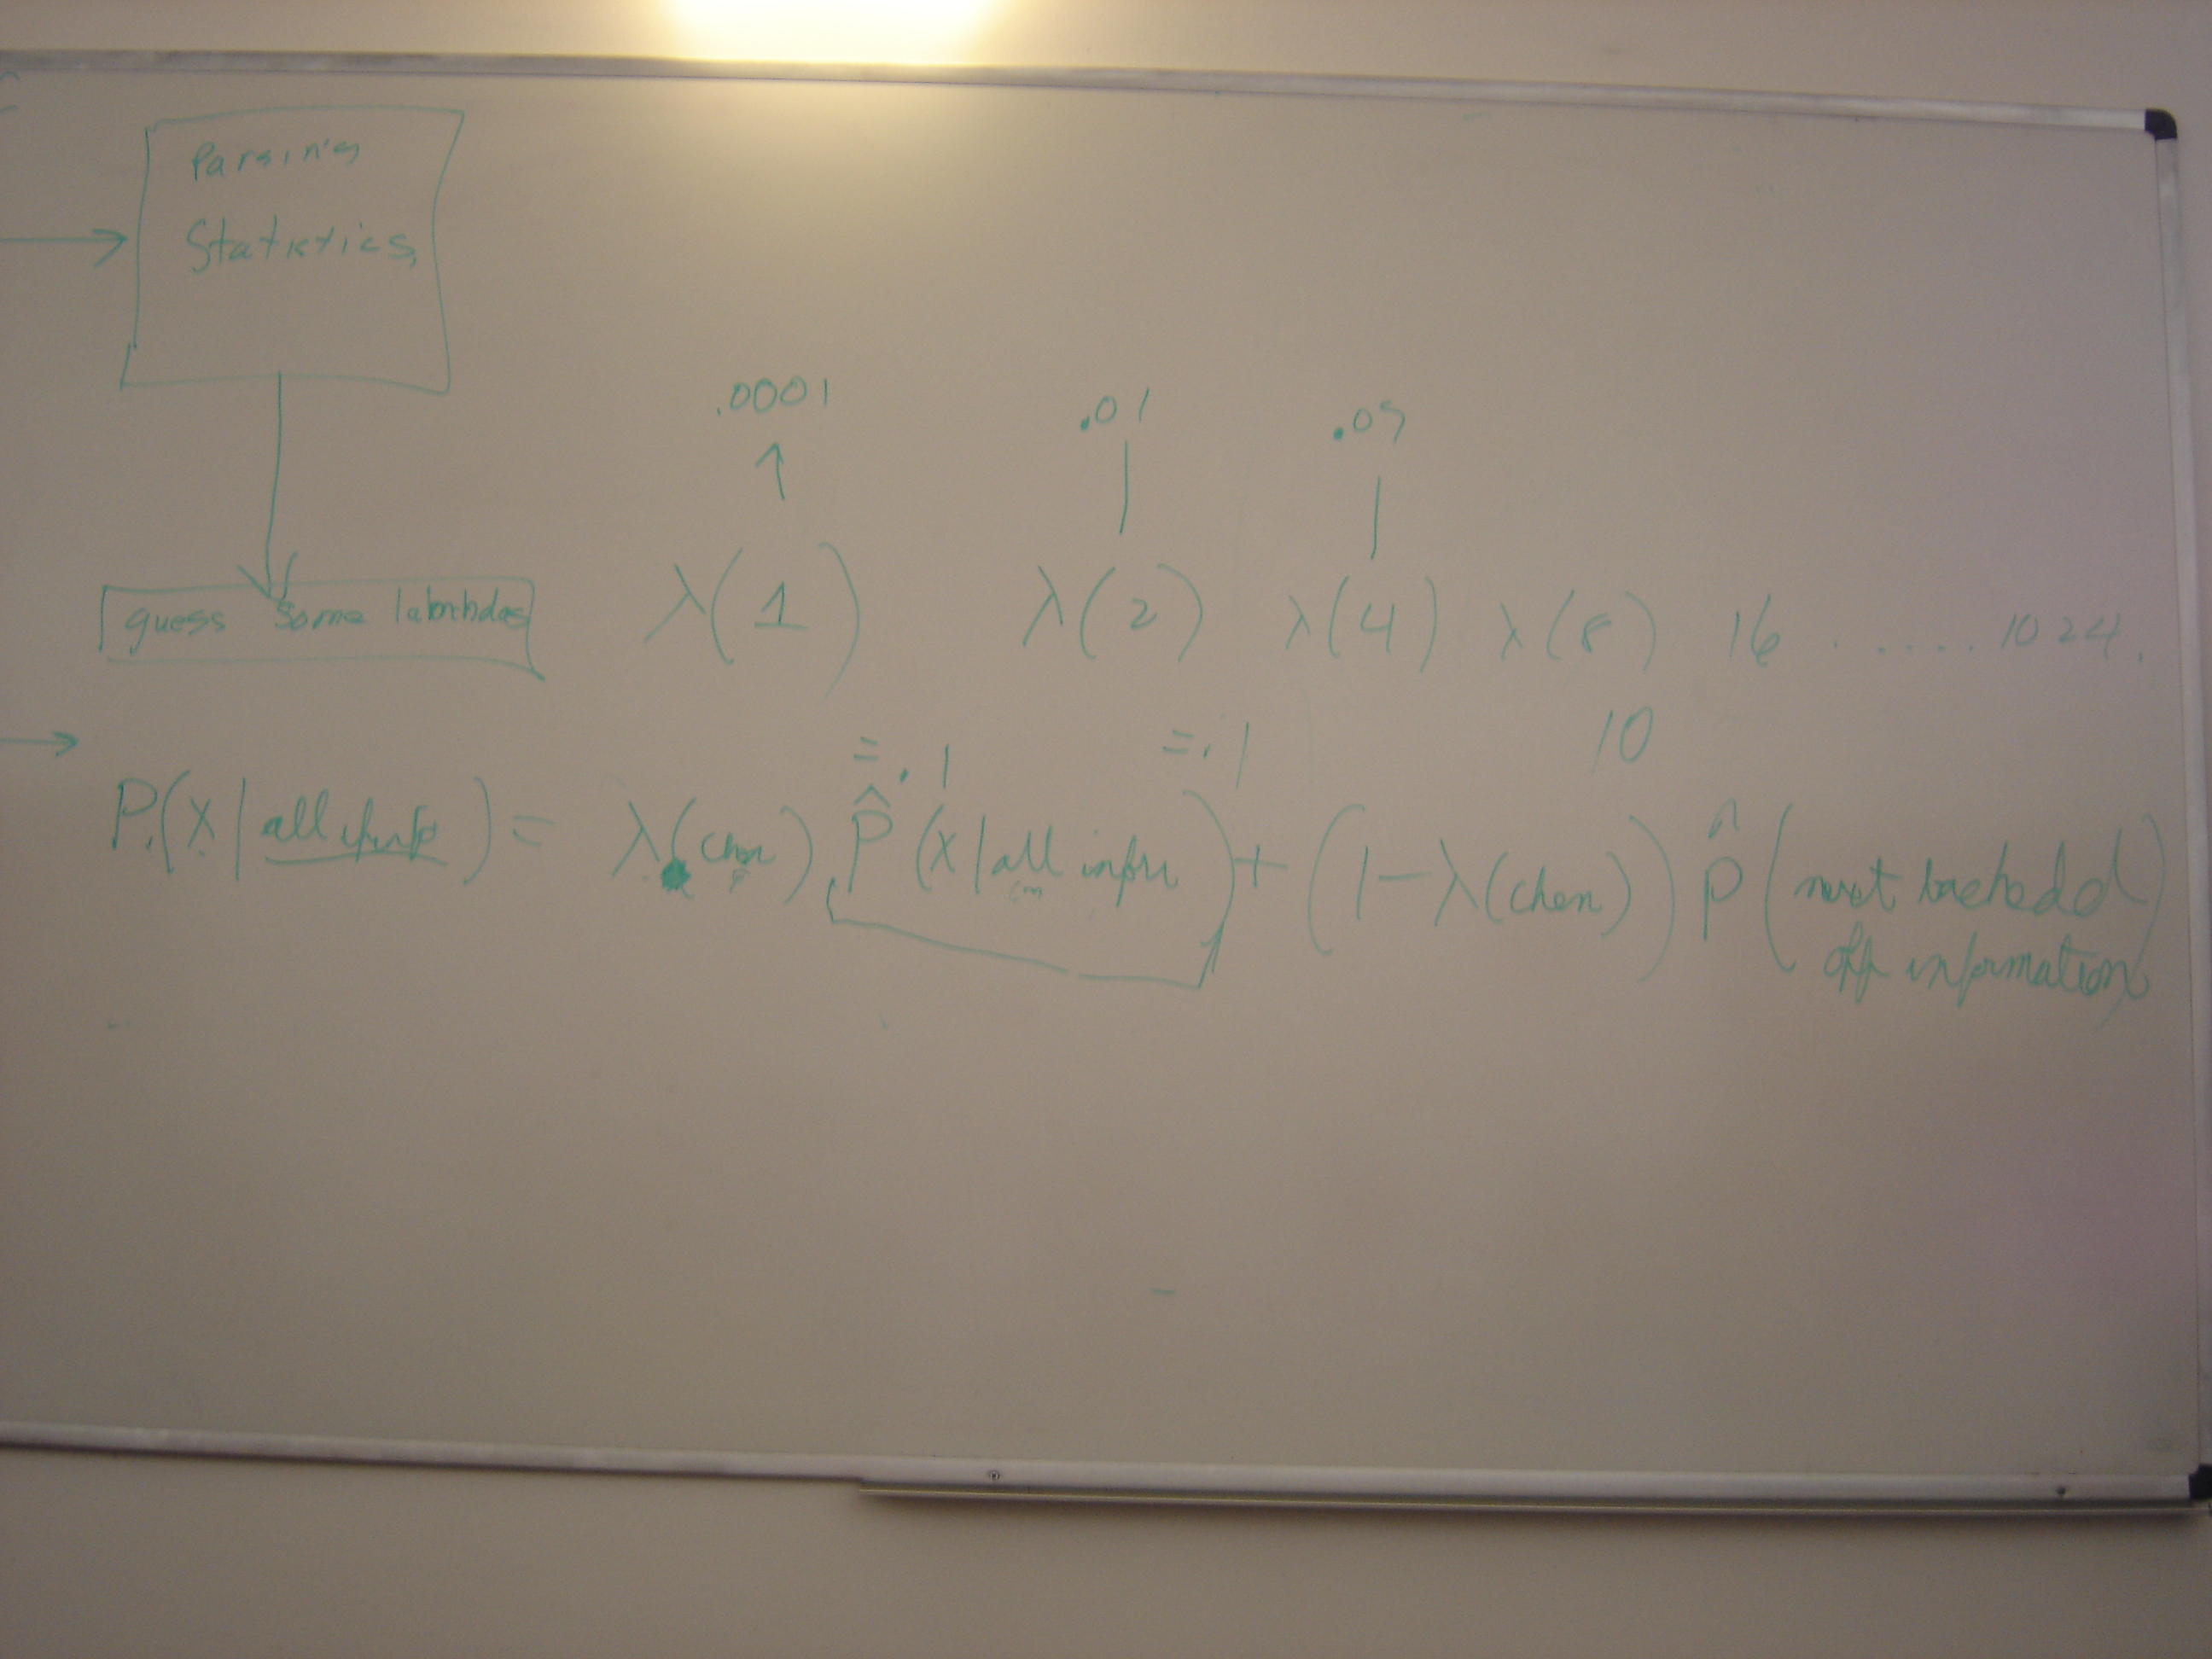 Parsing
Statistics
.0001 .01 .05
guess some lambdas
λ(1) λ(2) λ(4) λ(8) 16 ...... 1024.
=.1 =.1 10
P(x | all info) = λ(chen) P̂(x | all info) + (1-λ(chen)) P̂(next backed
off information)